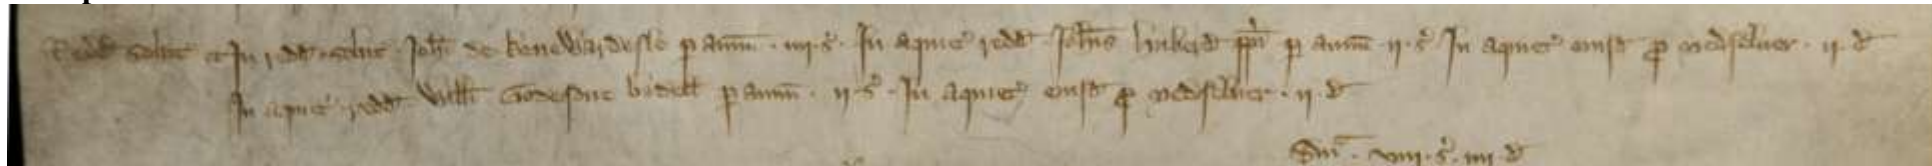 Redd solut et In redd solut Joh de kenewardesle p ann · iiii · s · In aquiet redd Johis huberd p ann · ii · s In aquiet eiusd p medselver · ii · d
In aquiet redd Willi Godesone bedell p ann · ii · s · In aquiet eiusd p medselver · ii · d
Sm · viii · s · iiii · d